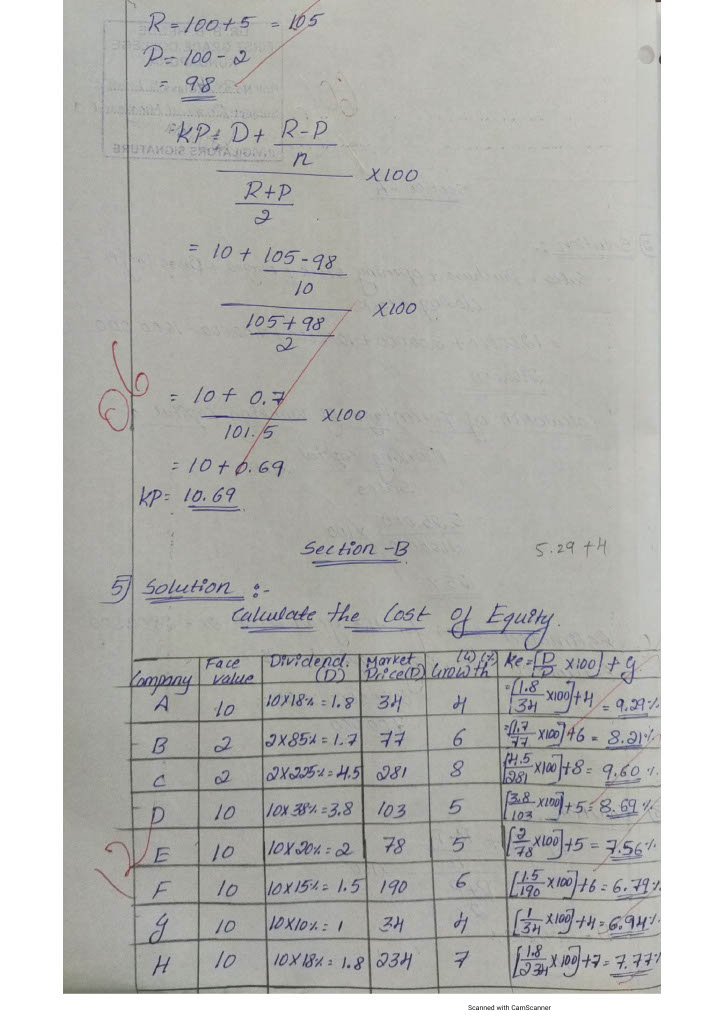 R = 100+5 = 105
P = 100-2
= 98
KP = D + R-P
n
x100
R+P
2
= 10 + 105-98
10
x100
105+98
2
06
= 10 + 0.7
x100
101.5
= 10+0.69
KP = 10.69
Section -B
5.29 +4
5) Solution :-
Calculate the Cost of Equity.
Company Face value Dividend. (D) Market Price(P) (G) (%) Growth Ke = [D/P x100] + g
A 10 10x18% = 1.8 34 4 = [1.8/34 x100]+4 = 9.29%
B 2 2x85% = 1.7 77 6 = [1.7/77 x100]+6 = 8.21%
C 2 2x225% = 4.5 281 8 [4.5/281 x100]+8 = 9.60 %
D 10 10x38% = 3.8 103 5 [3.8/103 x100]+5 = 8.69%
E 10 10x20% = 2 78 5 [2/78 x100]+5 = 7.56%
12
F 10 10x15% = 1.5 190 6 [1.5/190 x100]+6 = 6.79%
G 10 10x10% = 1 34 4 [1/34 x100]+4 = 6.94%
H 10 10x18% = 1.8 234 7 [1.8/234 x100]+7 = 7.77%
Scanned with CamScanner